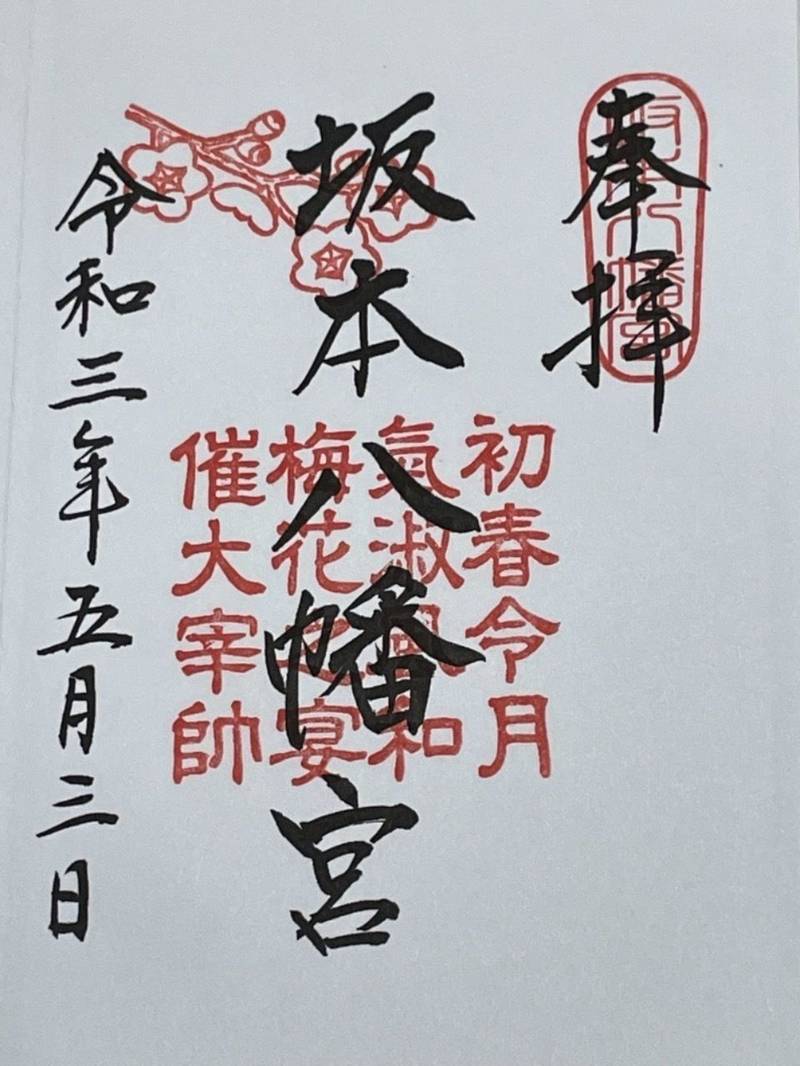 奉拝
坂本八幡宮
初春令月
氣淑風和
梅花之宴
催大宰帥
坂本八幡宮
令和三年五月三日